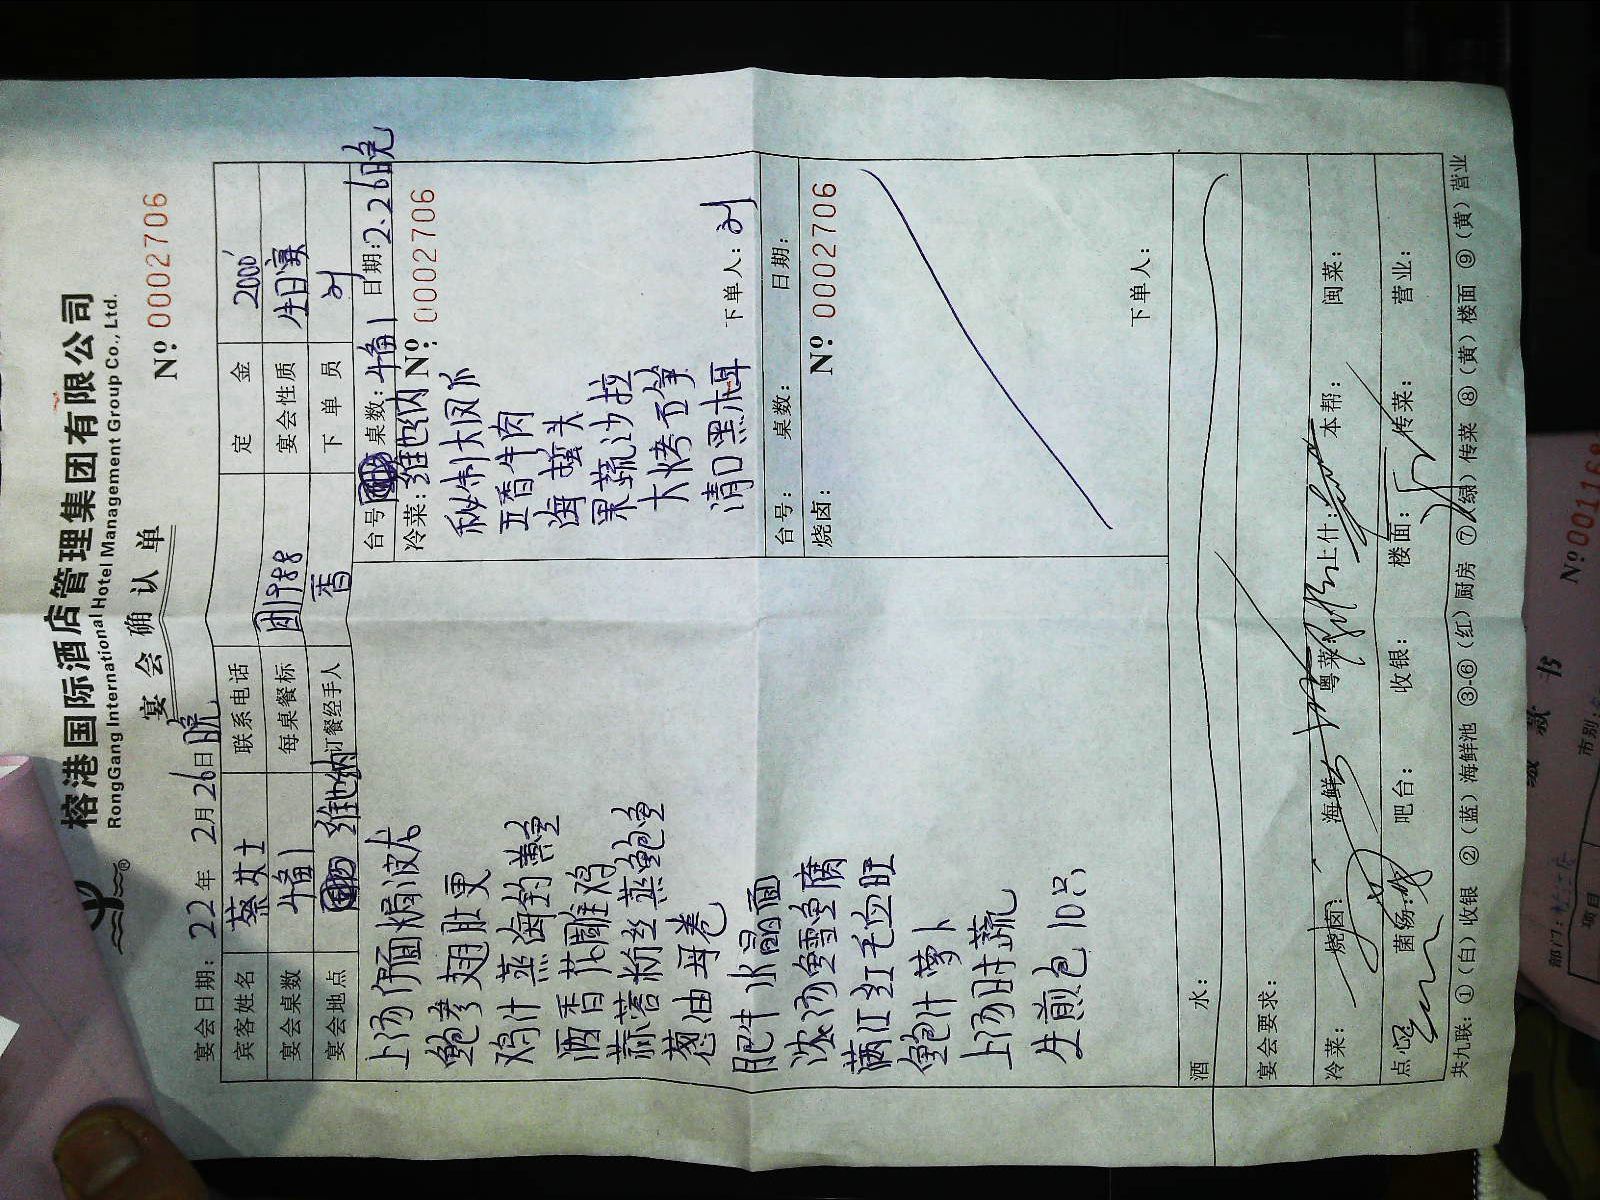 榕港国际酒店管理集团有限公司
RongGang International Hotel Management Group Co., Ltd.
®
宴会确认单
宴会日期：22年 2月26日晚
Nº 0002706
宾客姓名 蔡女士 联系电话 定金 2000
宴会桌数 每桌餐标 团1988 宴会性质 生日宴
宴会地点 维也纳 订餐经手人 香 下单员 刘
上汤伊面焗波龙
鲍参翅肚更
鸡汁蒸海钓黄鱼
酒香花雕鸡
蒜蓉粉丝蒸鲍鱼
葱油母卷
肥牛水晶面
浓汤鱼雪鱼腐
满江红毛血旺
鲍汁萝卜
上汤时蔬
生煎包10只
台号： 桌数： 日期：2.26晚
冷菜：维也纳 Nº: 0002706
秘制大凤爪
五香牛肉
海蜇头
果蔬沙拉
大烤五笋
清口黑木耳
下单人：刘
台号： 桌数： 日期：
烧卤： Nº 0002706
下单人：
酒水：
宴会要求：
冷菜： 烧卤： 海鲜： 粤菜： 上什： 本帮： 闽菜：
点心： 菌汤： 吧台： 收银： 楼面： 传菜： 营业：
共九联：①（白）收银 ②（蓝）海鲜池 ③-⑥（红）厨房 ⑦（绿）传菜 ⑧（黄）楼面 ⑨（黄）营业
Nº 001168
款 书
部门：
市别：
项目